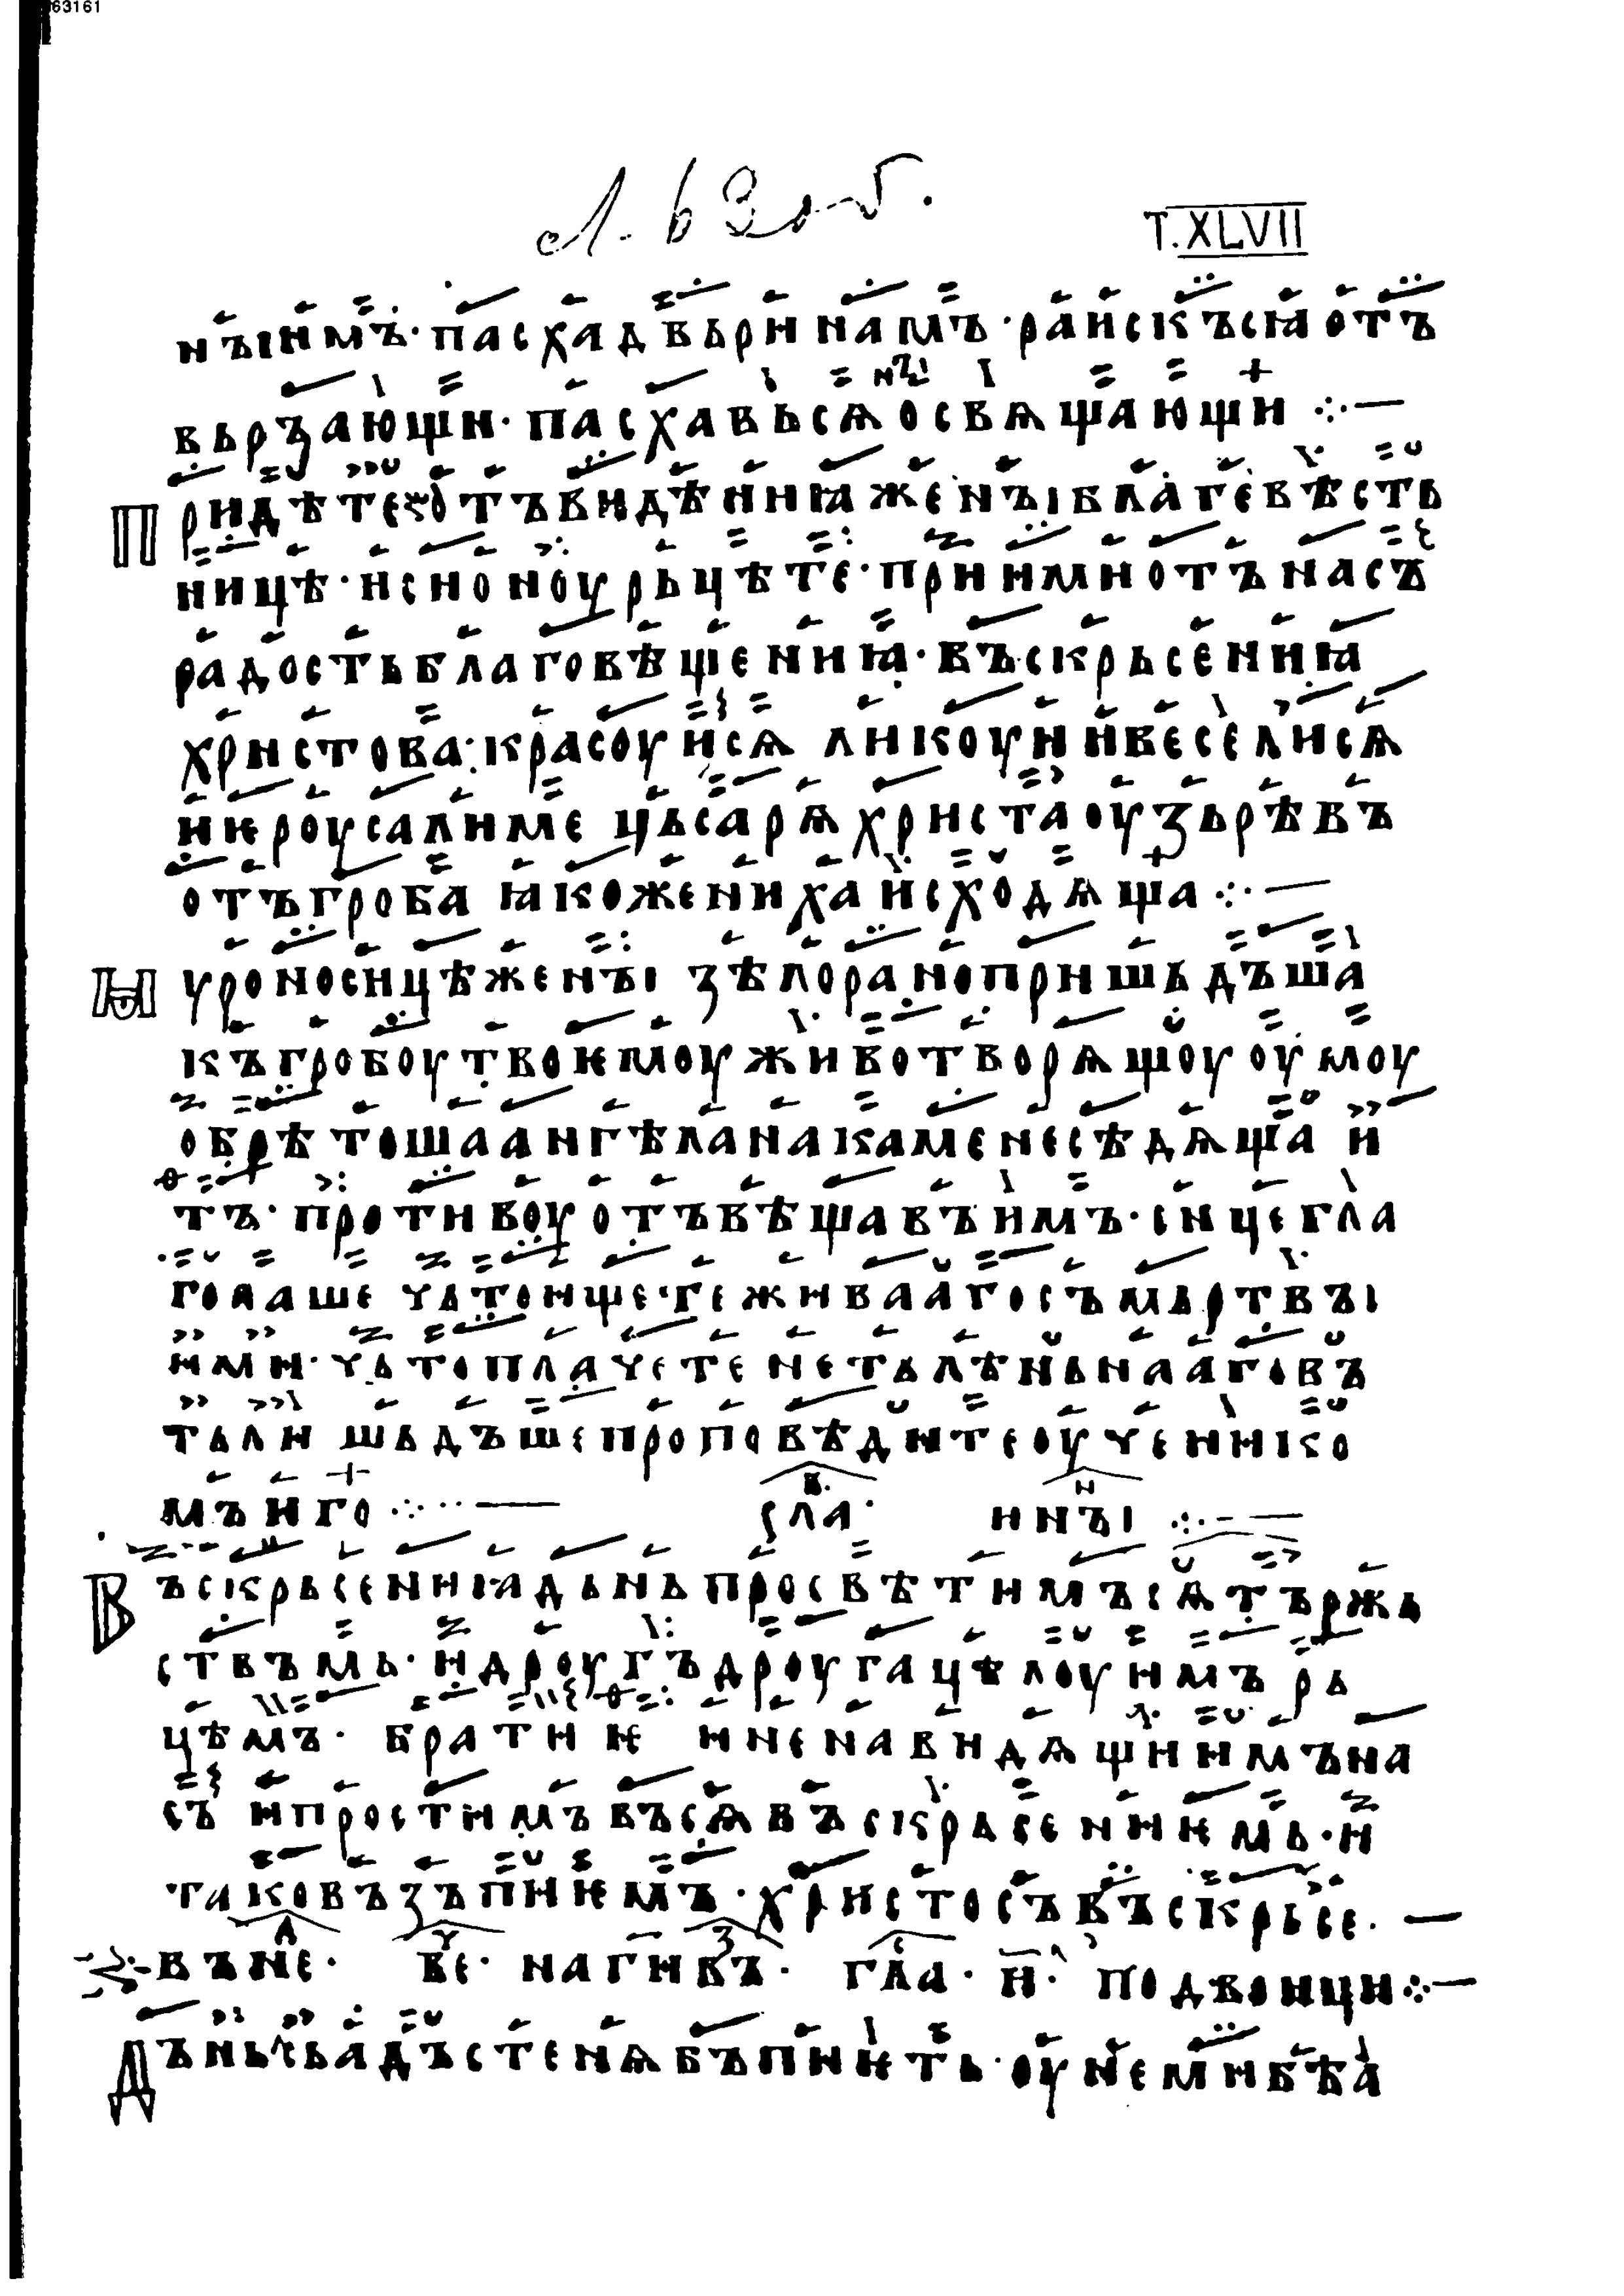 63161
Л. 63 об.
Т. XLVII
нъіимъ·пасхадвьринамъ·раискъсꙗотъ
вьрзающи·пасхавьсѧосвѧщающи ⁘—
Придѣтеотъвидѣниꙗженъіблагевѣсть
ницѣ·исионоурьцѣте·приимиотънасъ
радостьблаговѣщениꙗ·въскрьсениꙗ
христова:красоуисѧ ликоуи ивеселисѧ
иѥроусалиме цьсарѧхристаоузьрѣвъ
отъгроба ꙗкоженихаисходѧща ⁘—
Мѵроносицѣженъі зѣлоранопришьдъша
къгробоутвоѥмоуживотворѧщоуоумоу
обрѣтошаангѣланакаменесѣдѧща и
тъ·противоуотъвѣщавъимъ·сицегла
голаше чьтоище·те живаагосъмьртвъі
ими·чьтоплачете нетьлѣньнааговъ
тьли шьдъшепроповѣдитеоученико
мъѥго ⁘—  сла·  инъі ⁘—
Въскрьсениꙗдьньпросвѣтимъсѧтържь
ствъмь·идроугъдроугацѣлоуимъ рь
цѣмъ· братиѥ иненавидѧщиимъна
съ ипростимъвьсѧвъскрьсениѥмь·и
таковъзъпиѥмъ·христосъвъскрьсе. —
въне· ве· нагивъ· гла· и· подвоици⁘—
Дъньчьадъстенѧбъпиѥть·оунемибѣа